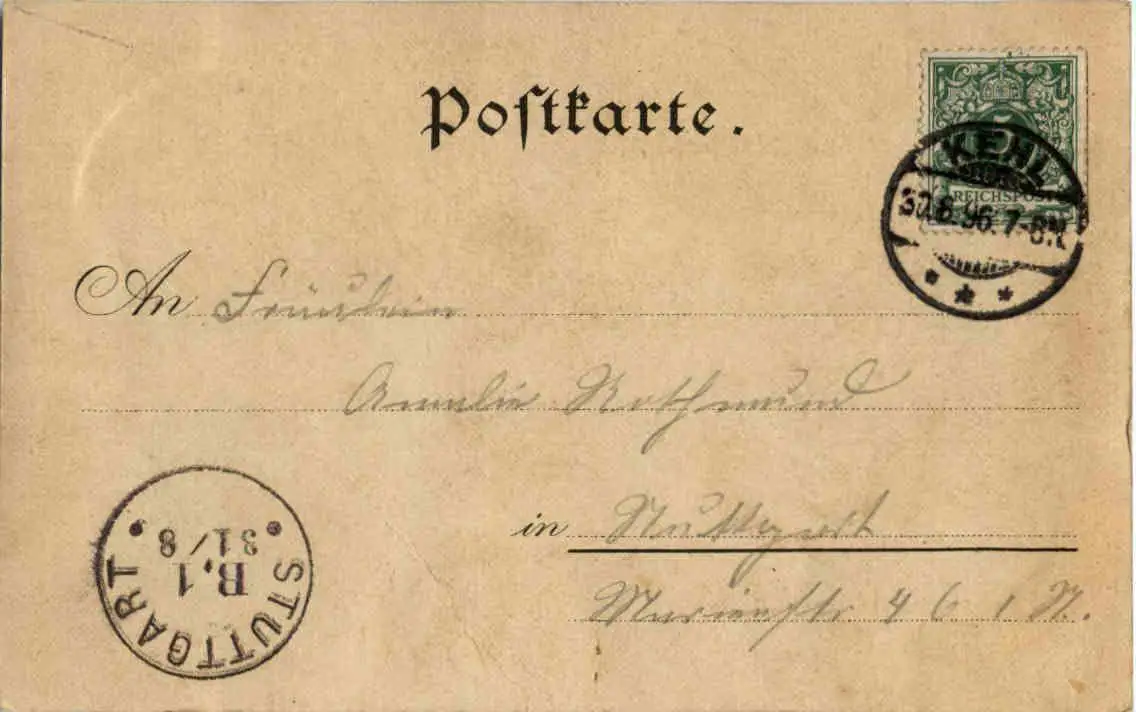 Postkarte.
5
REICHSPOST
KEHL
30.8.96.7-8N.
An Fräulein
Amalie Rothmund
in Stuttgart
Marienstr 46 I
STUTTGART
B.1
31/8